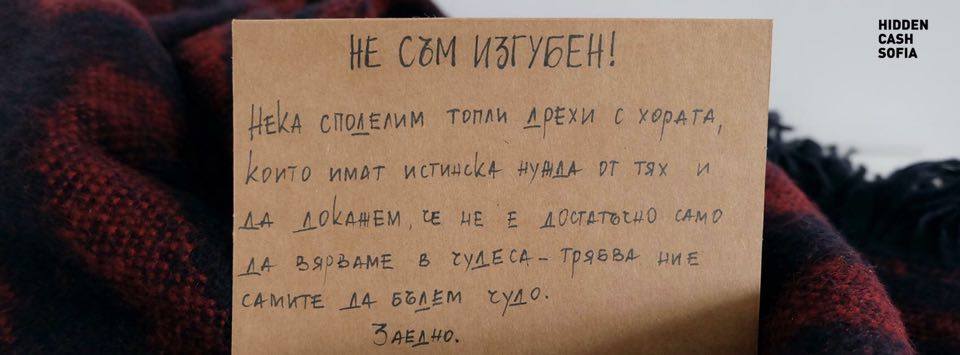 НЕ СЪМ ИЗГУБЕН!
НЕКА СПОДЕЛИМ ТОПЛИ ДРЕХИ С ХОРАТА,
КОИТО ИМАТ ИСТИНСКА НУЖДА ОТ ТЯХ И
ДА ДОКАЖЕМ, ЧЕ НЕ Е ДОСТАТЪЧНО САМО
ДА ВЯРВАМЕ В ЧУДЕСА - ТРЯБВА НИЕ
САМИТЕ ДА БЪДЕМ ЧУДО.
ЗАЕДНО.
HIDDEN
CASH
SOFIA